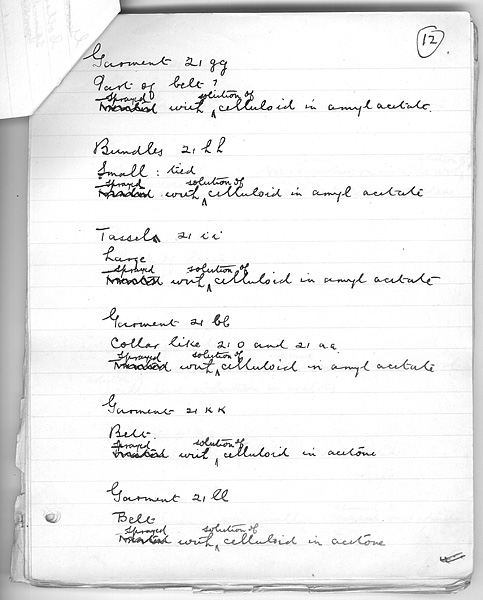 12
Garment 21 gg
Part of belt?
sprayed solution of
with ^ celluloid in amyl acetate.
Bundles 21 hh
Small: tied
sprayed solution of
with ^ celluloid in amyl acetate
Tassel 21 ii
Large
sprayed solution of
with ^ celluloid in amyl acetate
Garment 21 bb
Collar like 21 o and 21 aa.
sprayed solution of
with ^ celluloid in amyl acetate
Garment 21 KK
Belt.
sprayed solution of
with ^ celluloid in acetone
Garment 21 ll
Belt
sprayed solution of
with ^ celluloid in acetone